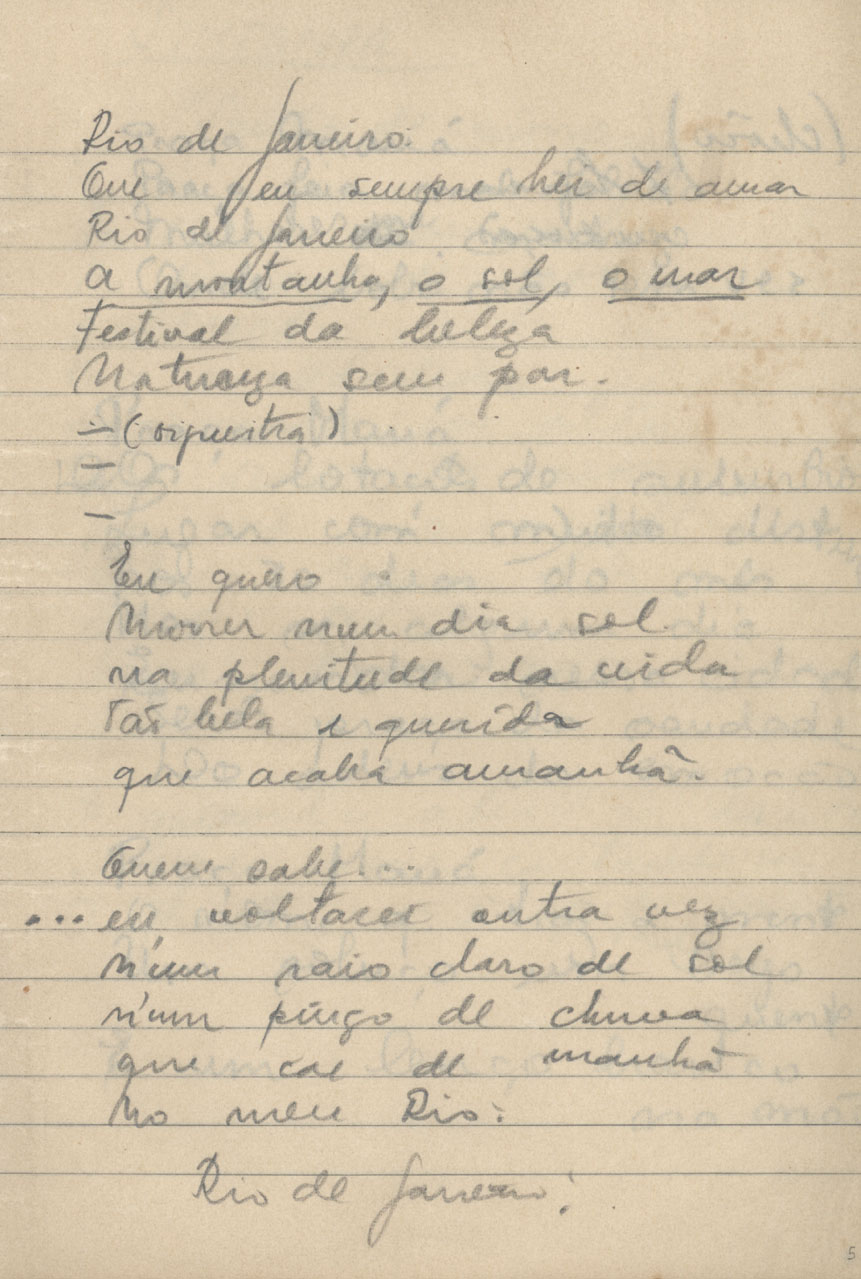 Rio de Janeiro.
Que eu sempre hei de amar
Rio de Janeiro
a montanha, o sol, o mar
Festival da beleza
Natureza sem par.
— (orquestra)
—
—
Eu quero
Morrer num dia sol.
na plenitude da vida
Tão bela e querida
que acaba amanhã.
Quem sabe...
...eu voltarei outra vez
N'um raio claro de sol
n'um pingo de chuva
que cae de manhã
No meu Rio:
Rio de Janeiro!
5